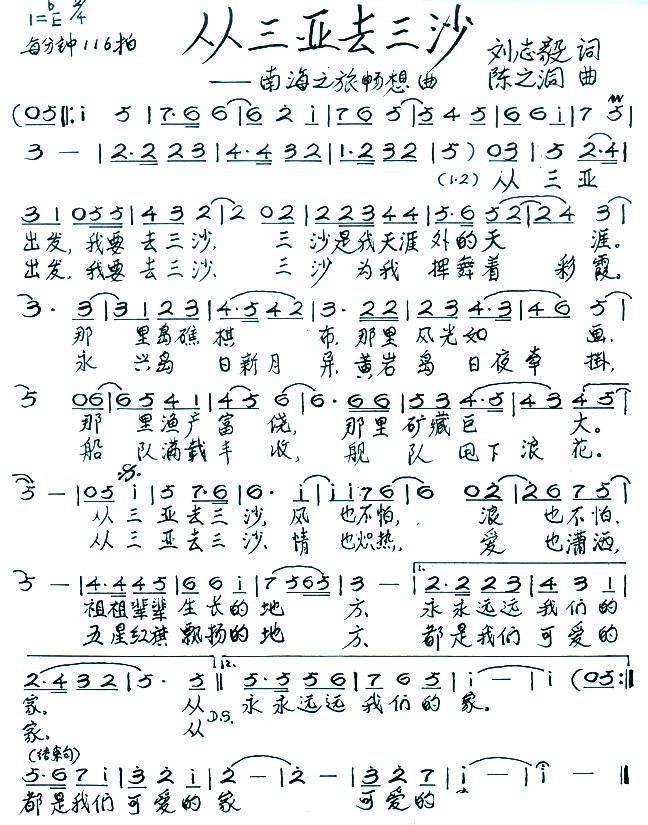 1=♭E 2/4
从三亚去三沙
刘志毅 词
每分钟116拍
——南海之旅畅想曲
陈之涧 曲
(05‖: i 5 | 7·6 6 | 6 2 i | 7 6 5 | 5 4 5 | 6 6 i | 7 5 |
3 — | 2·2 2 3 | 4·4 3 2 | 1·2 3 2 | 5 ) 0 3 | 5 2·4 |
(1.2) 从 三 亚
3 1 0 5 5 | 4 3 2 | 2 0 2 | 2 2 3 4 4 | 5·6 5 2 | 2 4 3 |
出发,我要 去三沙, 三 沙是我天涯 外的天 涯。
出发,我要 去三沙、 三 沙 为我 挥舞着 彩霞。
3· 3 | 3 1 2 3 | 4·5 4 2 | 3· 2 2 | 2 3 4·3 | 4 6 5 |
那 里岛礁棋 布,那里 风光如 画.
永 兴岛 日新月 异,黄岩岛 日夜牵 掛,
5 0 6 | 6 5 4 1 | 4 5 6 | 6· 6 6 | 5 3 4·5 | 4 3 4 5 |
那 里渔产富 饶, 那里 矿藏巨 大。
船 队满载丰 收, 舰 队 甩下 浪 花。
5 — | 0 5 i | 5 7·6 | 6· i | i i 7 6 | 6 0 2 | 2 6 7 5 |
从三亚去三沙,风 也不怕, 浪 也不怕、
从三亚去三沙、情 也炽热, 爱 也潇洒,
5 — | 4·4 4 5 | 6 6 i | 7 5 6 5 | 3 — | 1. 2·2 2 3 | 4 3 1 |
祖祖辈辈 生长的地 方、 永永远远 我们的
五星红旗 飘扬的地 方、 都是我们 可爱的
2·4 3 2 | 5· 5 ‖ 2. 5·5 5 6 | 7 6 5 | i — | i (0 5 :‖
家。 从 D.S. 永永远远 我们的 家。
家、 从
(结束句)
5·6 7 i | 3 2 i | 2 — | 2 — | 3 2 7 | i — | i — ‖
都是我们 可爱的 家 可爱的